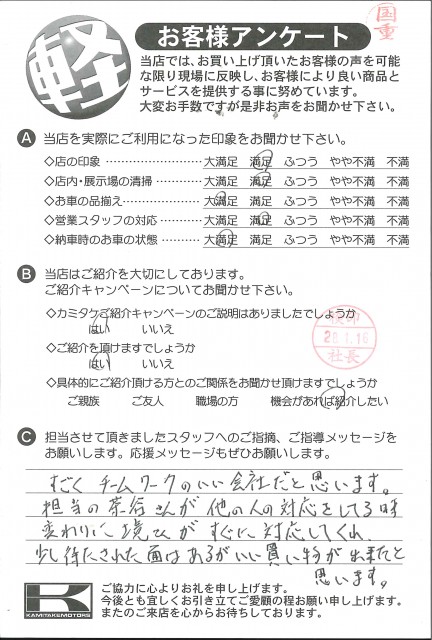 国重
軽
お客様アンケート
当店では、お買い上げ頂いたお客様の声を可能
な限り現場に反映し、お客様により良い商品と
サービスを提供する事に努めています。
大変お手数ですが是非お声をお聞かせ下さい。
A 当店を実際にご利用になった印象をお聞かせ下さい。
◇店の印象 ………………… 大満足 満足 ふつう やや不満 不満
◇店内・展示場の清掃 ………… 大満足 満足 ふつう やや不満 不満
◇お車の品揃え ……………… 大満足 満足 ふつう やや不満 不満
◇営業スタッフの対応 ………… 大満足 満足 ふつう やや不満 不満
◇納車時のお車の状態 ………… 大満足 満足 ふつう やや不満 不満
B 当店はご紹介を大切にしております。
ご紹介キャンペーンについてお聞かせ下さい。
◇カミタケご紹介キャンペーンのご説明はありましたでしょうか
はい いいえ
◇ご紹介を頂けますでしょうか
はい いいえ
28.1.16
社長
◇具体的にご紹介頂ける方とのご関係をお聞かせ頂けますでしょうか
ご親族 ご友人 職場の方 機会があれば紹介したい
C 担当させて頂きましたスタッフへのご指摘、ご指導メッセージを
お願いします。応援メッセージもぜひお願いします。
すごくチームワークのいい会社だと思います。
担当の茶谷さんが他の人の対応をしてる時
変わりに境さんがすぐに対応してくれ
少し待たされた面はあるがいい買い物が出来たと
思います。
K
KAMITAKEMOTORS
ご協力に心よりお礼を申し上げます。
今後とも宜しくお引き立てご愛顧の程お願い申し上げます。
またのご来店を心からお待ちしております。